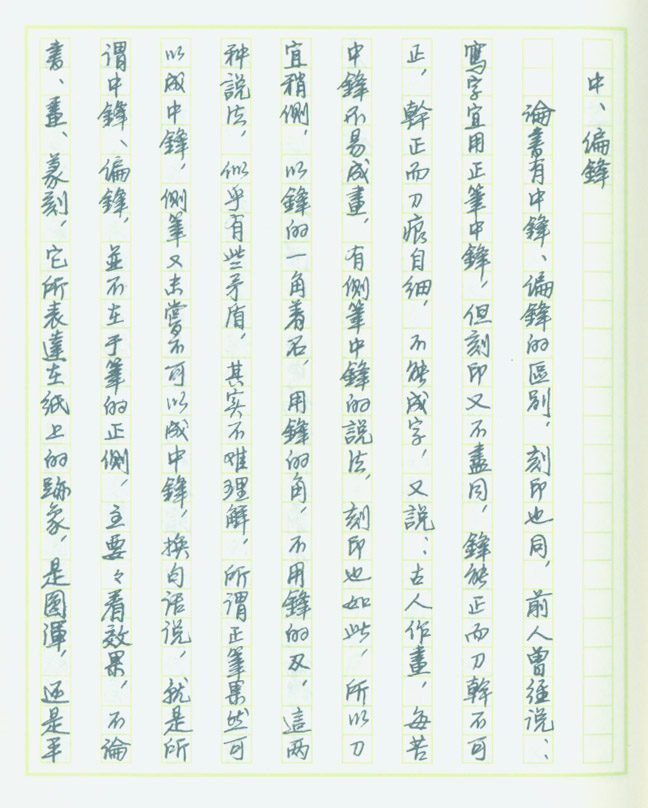 中、偏鋒
論書有中鋒、偏鋒的區别，刻印也同，前人曾經说：
寫字宜用正筆中鋒，但刻印又不盡同，鋒能正而刀幹不可
正，幹正而刀痕自细，不能成字，又説：古人作畫，每苦
中鋒不易成畫，有側筆中鋒的説法，刻印也如此，所以刀
宜稍侧，以鋒的一角着石，用鋒的角，不用鋒的刄，這两
种説法，似乎有些矛盾，其实不难理解，所谓正筆果然可
以成中鋒，侧筆又未嘗不可以成中鋒，换句话说，就是所
谓中鋒、偏鋒，並不在于筆的正侧，主要々看效果，不論
書、畫、篆刻，它所表達在纸上的跡象，是圆渾，还是平